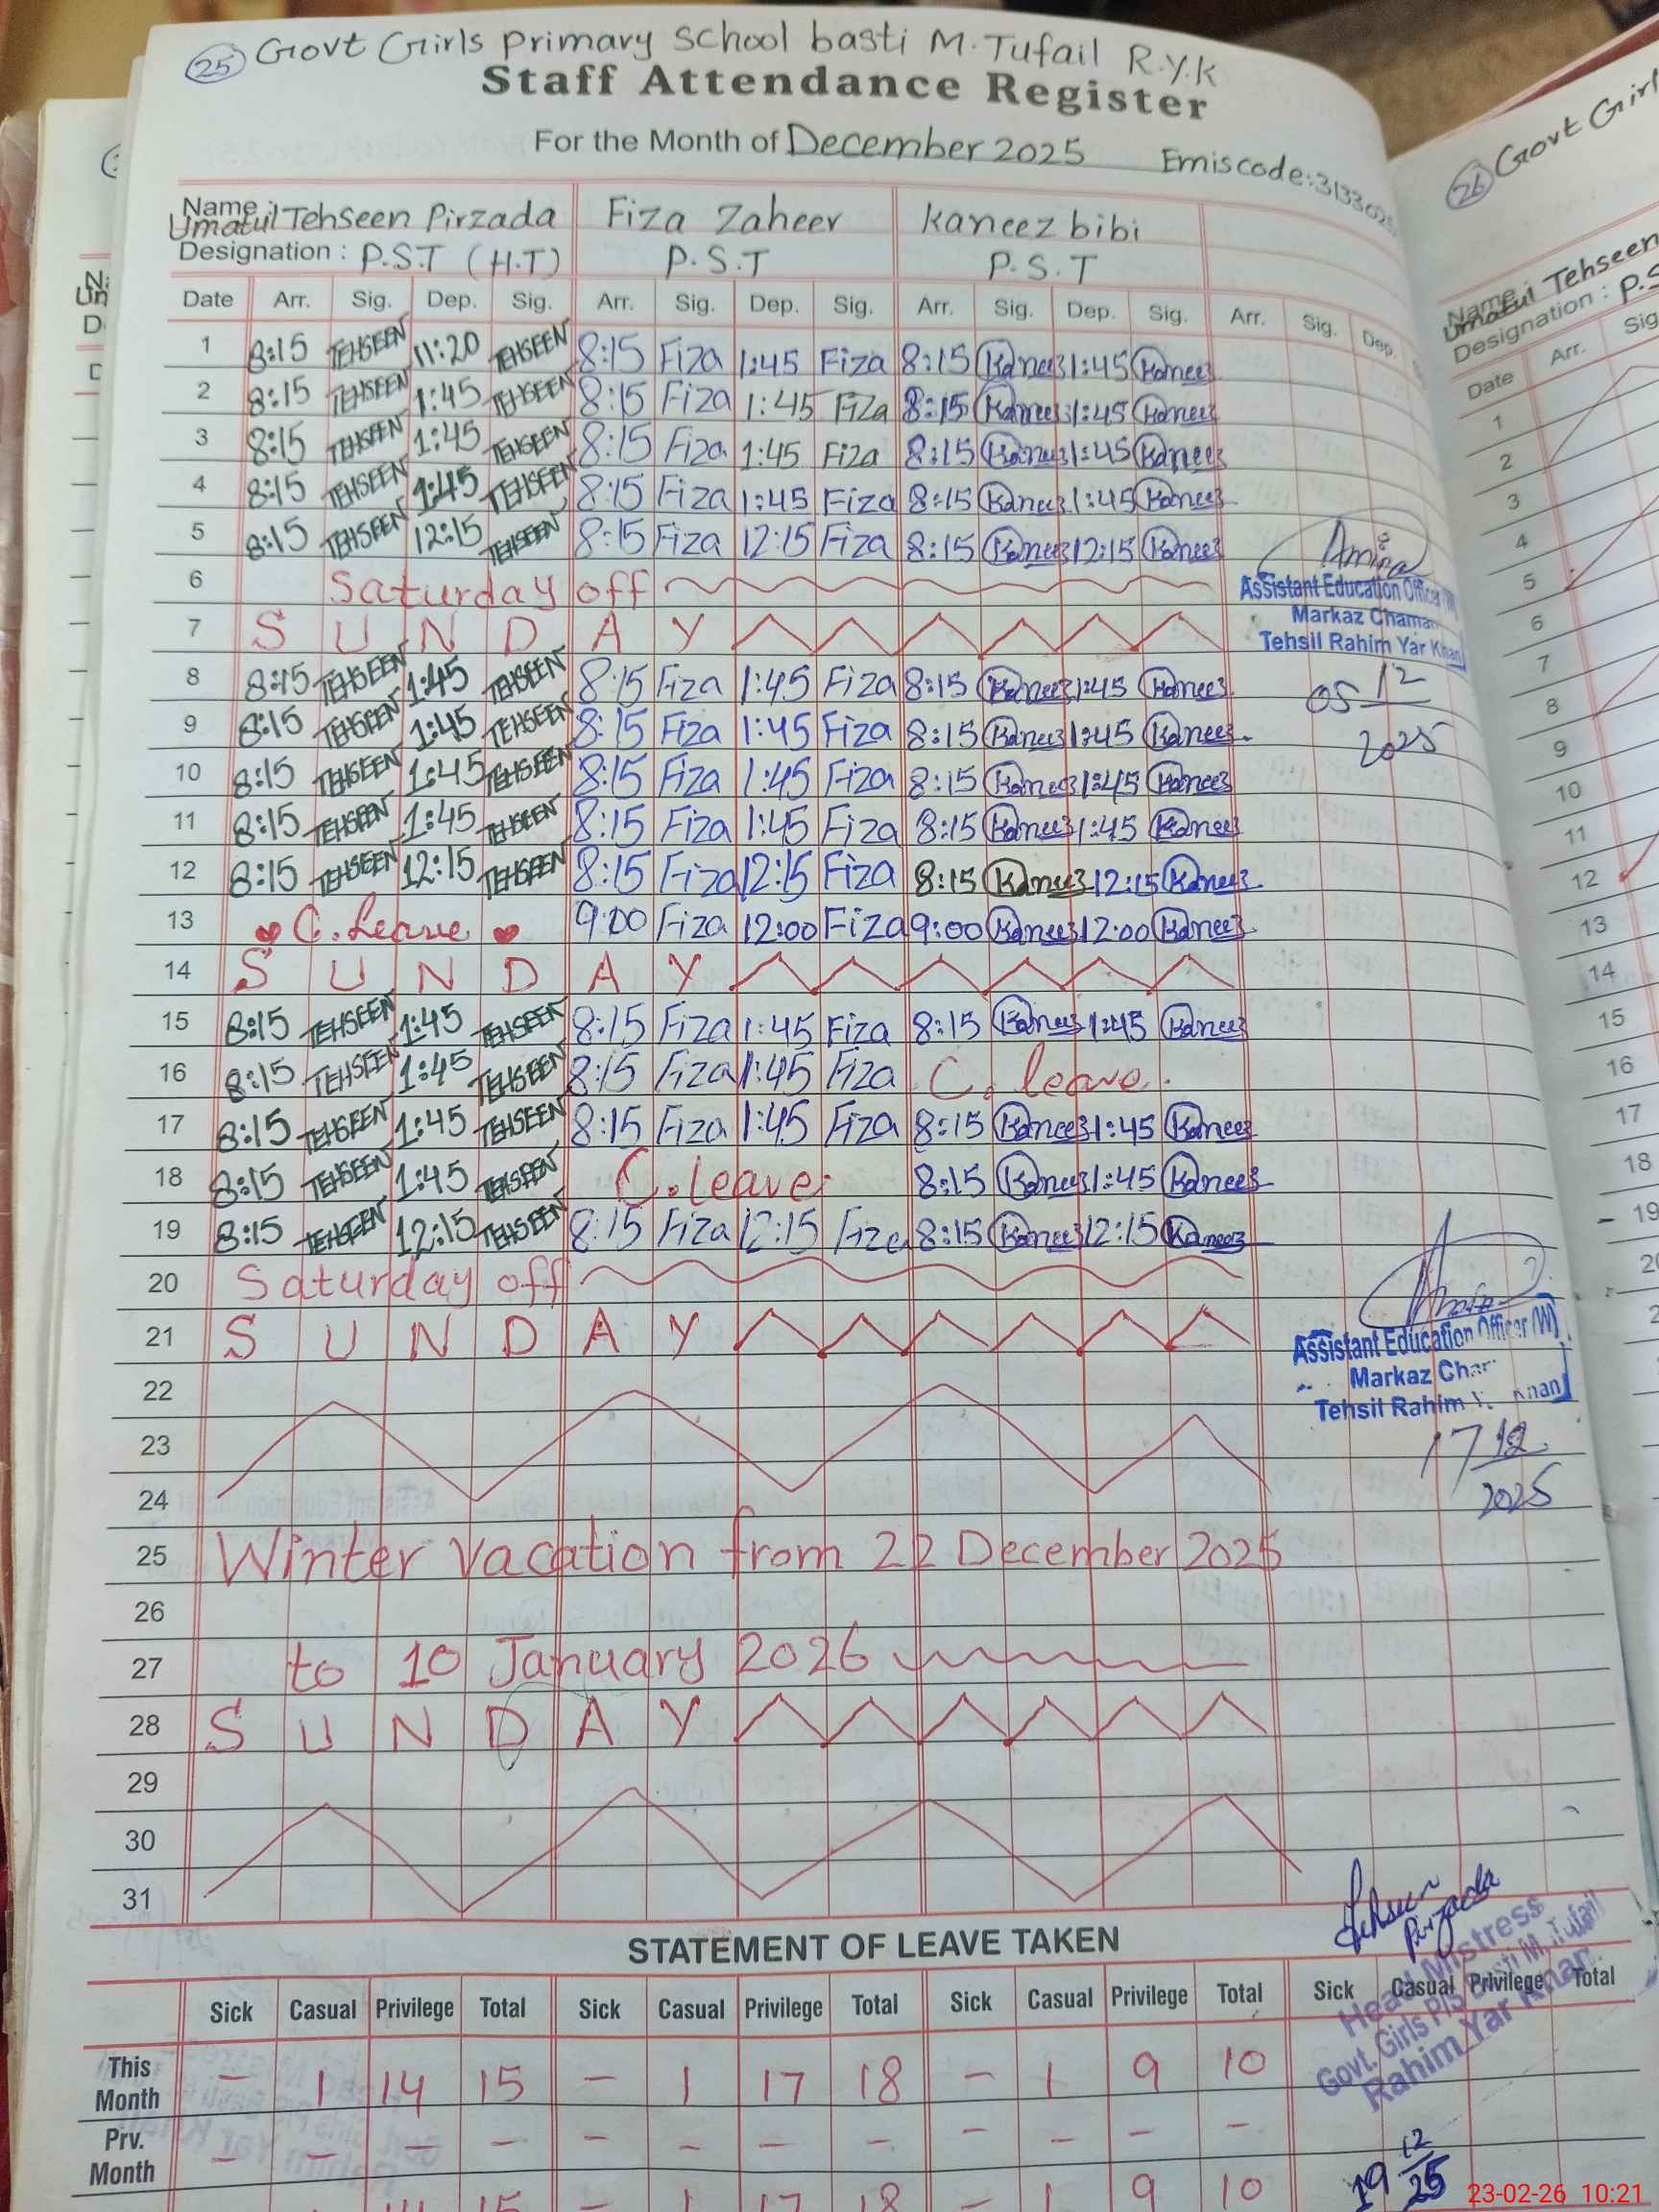 25 Govt Girls primary school basti M.Tufail R.Y.K
Staff Attendance Register
For the Month of December 2025 Emiscode:
Name : Umatul Tehseen Pirzada Fiza Zaheer Kaneez bibi
Designation : P.S.T (H.T) P.S.T P.S.T
Date Arr. Sig. Dep. Sig. Arr. Sig. Dep. Sig. Arr. Sig. Dep. Sig. Arr. Sig. Dep.
1 8:15 TEHSEEN 11:20 TEHSEEN 8:15 Fiza 1:45 Fiza 8:15 Kaneez 1:45 Kaneez
2 8:15 TEHSEEN 1:45 TEHSEEN 8:15 Fiza 1:45 Fiza 8:15 Kaneez 1:45 Kaneez
3 8:15 TEHSEEN 1:45 TEHSEEN 8:15 Fiza 1:45 Fiza 8:15 Kaneez 1:45 Kaneez
4 8:15 TEHSEEN 1:45 TEHSEEN 8:15 Fiza 1:45 Fiza 8:15 Kaneez 1:45 Kaneez
5 8:15 TEHSEEN 12:15 TEHSEEN 8:15 Fiza 12:15 Fiza 8:15 Kaneez 12:15 Kaneez
Amina
6 Saturday off
Assistant Education Officer (W)
7 S U N D A Y
Markaz Chaman
Tehsil Rahim Yar Khan
8 8:15 TEHSEEN 1:45 TEHSEEN 8:15 Fiza 1:45 Fiza 8:15 Kaneez 1:45 Kaneez
05 12
2025
9 8:15 TEHSEEN 1:45 TEHSEEN 8:15 Fiza 1:45 Fiza 8:15 Kaneez 1:45 Kaneez
10 8:15 TEHSEEN 1:45 TEHSEEN 8:15 Fiza 1:45 Fiza 8:15 Kaneez 1:45 Kaneez
11 8:15 TEHSEEN 1:45 TEHSEEN 8:15 Fiza 1:45 Fiza 8:15 Kaneez 1:45 Kaneez
12 8:15 TEHSEEN 12:15 TEHSEEN 8:15 Fiza 12:15 Fiza 8:15 Kaneez 12:15 Kaneez
13 C. Leave 9:00 Fiza 12:00 Fiza 9:00 Kaneez 12:00 Kaneez
14 S U N D A Y
15 8:15 TEHSEEN 1:45 TEHSEEN 8:15 Fiza 1:45 Fiza 8:15 Kaneez 1:45 Kaneez
16 8:15 TEHSEEN 1:45 TEHSEEN 8:15 Fiza 1:45 Fiza C. leave.
17 8:15 TEHSEEN 1:45 TEHSEEN 8:15 Fiza 1:45 Fiza 8:15 Kaneez 1:45 Kaneez
18 8:15 TEHSEEN 1:45 TEHSEEN C. leave 8:15 Kaneez 1:45 Kaneez
19 8:15 TEHSEEN 12:15 TEHSEEN 8:15 Fiza 12:15 Fiza 8:15 Kaneez 12:15 Kaneez
20 Saturday off
21 S U N D A Y
Assistant Education Officer (W)
Markaz
Tehsil Rahim Khan
22
23
17 12
2025
24
25 Winter Vacation from 22 December 2025
26
27 to 10 January 2026
28 S U N D A Y
29
30
31
Tehseen Pirzada
STATEMENT OF LEAVE TAKEN
Head Mistress
Govt. Girls P/S Basti M. Tufail
Rahim Yar Khan
Sick Casual Privilege Total Sick Casual Privilege Total Sick Casual Privilege Total Sick Casual Privilege Total
This Month - 1 14 15 - 1 17 18 - 1 9 10
Prv. Month - - - - - - - - - - - -
14 15 - 1 17 18 - 1 9 10
19 12
25
23-02-26 10:21
26 Govt Girl
Name :
Umatul Tehseen
Designation : P.S
Date Arr. Sig
1
2
3
4
5
6
7
8
9
10
11
12
13
14
15
16
17
18
19